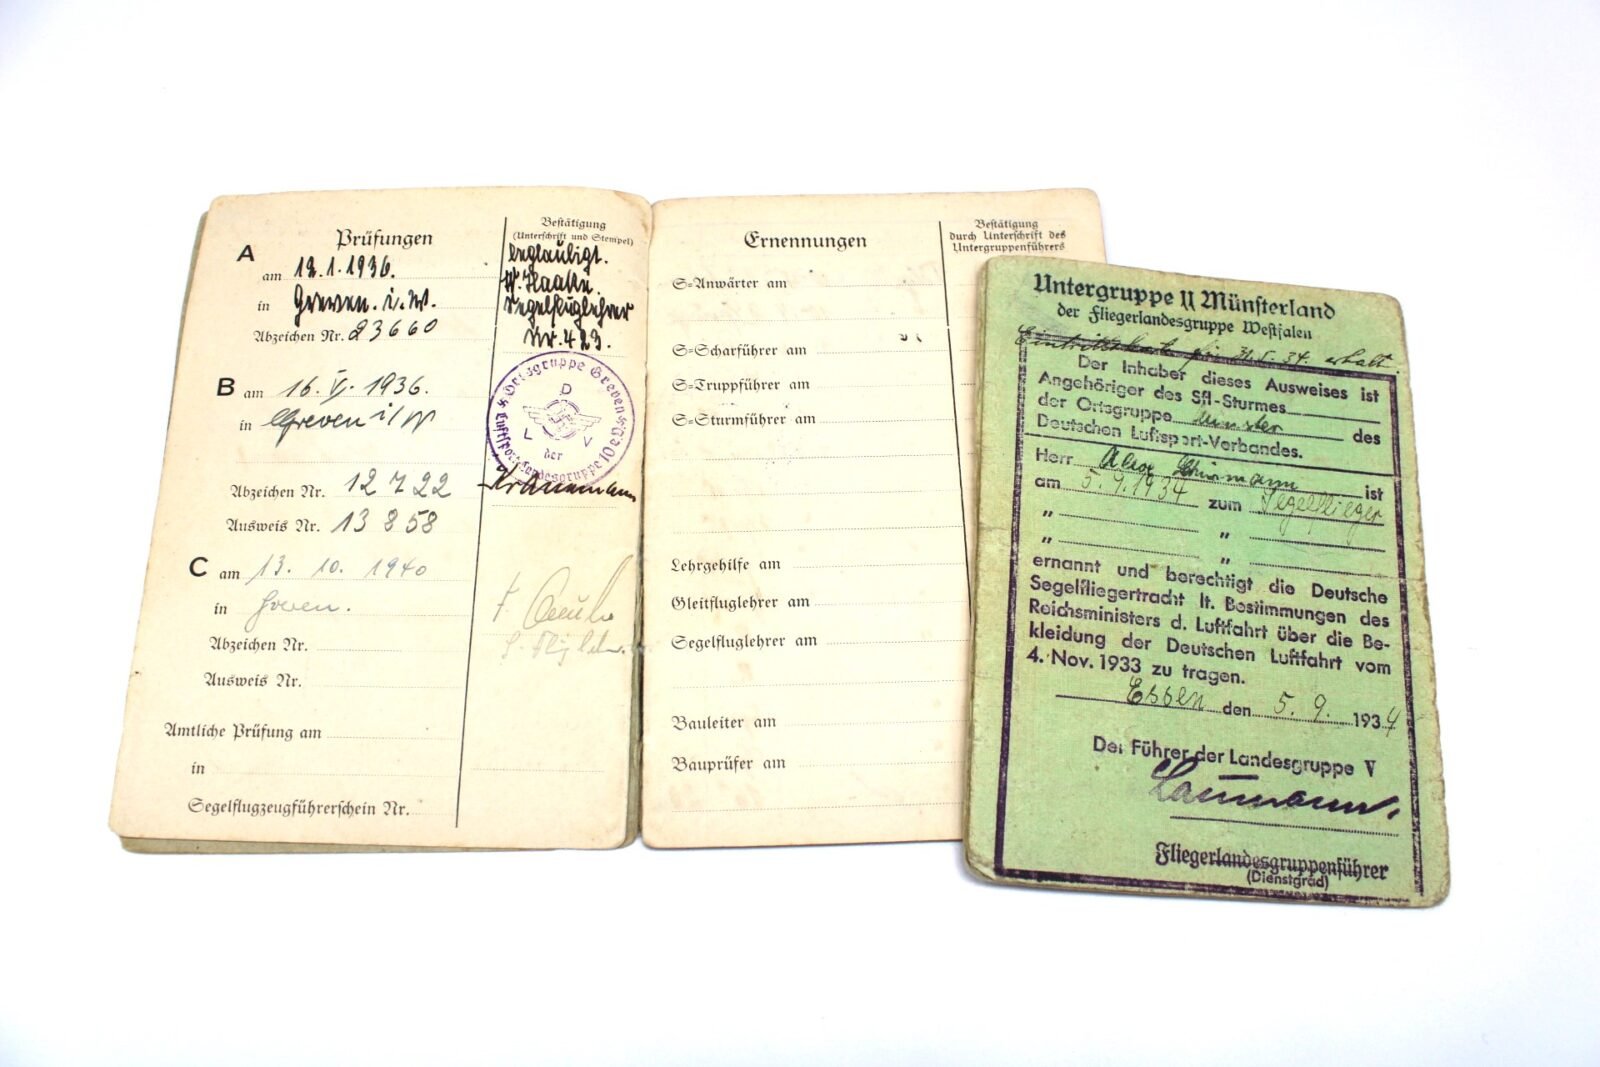 Prüfungen
Bestätigung
(Unterschrift und Stempel)
A
am 12.1.1936.
in Greven. i. W.
Abzeichen Nr. 23660
beglaubigt.
W. Haake.
Segelfluglehrer
Nr. 423.
B am 16. V. 1936.
in Greven i/W
Abzeichen Nr. 12722
Ausweis Nr. 13858
Ortsgruppe Greven
D
L V
der
Luftsportlandesgruppe 10
C am 13. 10. 1940
in Greven.
Abzeichen Nr.
Ausweis Nr.
Amtliche Prüfung am
in
Segelflugzeugführerschein Nr.
Ernennungen
Bestätigung
durch Unterschrift des
Untergruppenführers
S=Anwärter am
S=Scharführer am
S=Truppführer am
S=Sturmführer am
Lehrgehilfe am
Gleitfluglehrer am
Segelfluglehrer am
Bauleiter am
Bauprüfer am
Untergruppe II Münsterland
der Fliegerlandesgruppe Westfalen
Eintrittskarte für 31.5.34. erhalt.
Der Inhaber dieses Ausweises ist
Angehöriger des Sfl-Sturmes
der Ortsgruppe Münster des
Deutschen Luftsport-Verbandes.
Herr ist
am 5.9.1934 zum Segelflieger
" "
" "
ernannt und berechtigt die Deutsche
Segelfliegertracht lt. Bestimmungen des
Reichsministers d. Luftfahrt über die Be-
kleidung der Deutschen Luftfahrt vom
4. Nov. 1933 zu tragen.
Essen den 5. 9. 1934
Der Führer der Landesgruppe V
Fliegerlandesgruppenführer
(Dienstgrad)